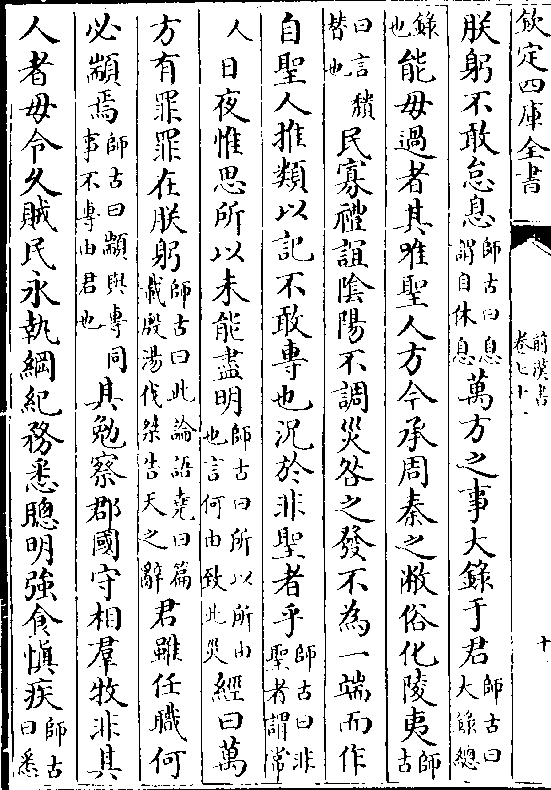 欽定四庫全書
前漢書
卷七十一
十
朕躬不敢怠息師古曰息謂自休息萬方之事大錄于君師古曰大錄總
錄也能毋過者其唯聖人方今承周秦之敝俗化陵夷師古
曰言穨替也民寡禮誼陰陽不調災咎之發不為一端而作
自聖人推類以記不敢專也況於非聖者乎師古曰非聖者謂常
人日夜惟思所以未能盡明師古曰所以所由也言何由致此災經曰萬
方有罪罪在朕躬師古曰此論語堯曰篇載殷湯伐桀告天之辭君雖任職何
必顓焉師古曰顓與專同事不專由君也其勉察郡國守相羣牧非其
人者毋令久賊民永執綱紀務悉聰明強食慎疾師古曰悉